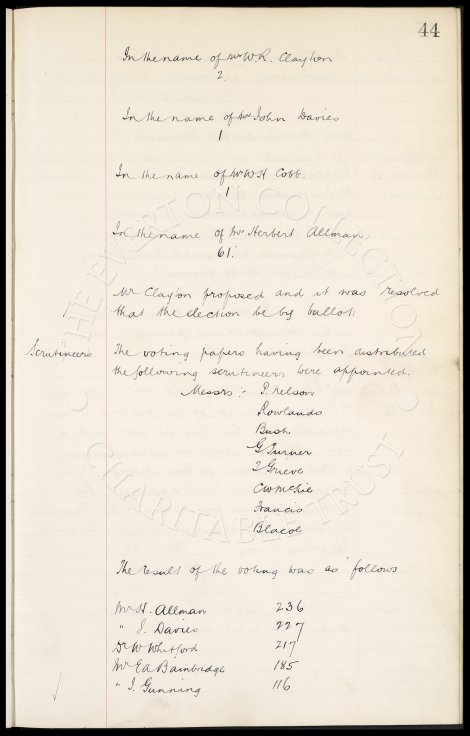 44
In the name of Mr W.R. Clayton
2.
In the name of Mr John Davies
1
In the name of Mr W H Cobb.
1
In the name of Mr Herbert Allman
61.
Mr Clayton proposed and it was resolved
that the election be by ballot.
Scrutineers
The voting papers having been distributed
the following scrutineers were appointed.
Messrs :- P. Nelson
Rowlands
Bush
G Turner
T Grieve
CW McKie
Francis
Blacoe
The result of the voting was as follows
Mr H. Allman 236
" J. Davies 227
Dr W Whitford 217
Mr E A Bainbridge 185
" J. Gunning 116
THE EVERTON COLLECTION
CHARITABLE TRUST